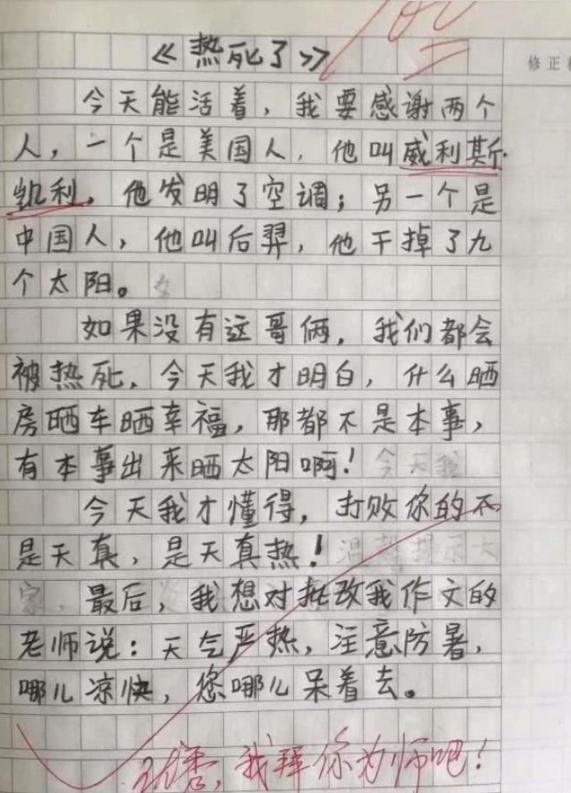 100
《热死了》
修正
今天能活着，我要感谢两个
人，一个是美国人，他叫威利斯·
凯利，他发明了空调；另一个是
中国人，他叫后羿，他干掉了九
个太阳。
如果没有这哥俩，我们都会
被热死，今天我才明白，什么晒
房晒车晒幸福，那都不是本事，
有本事出来晒太阳啊！今天我
今天我才懂得，打败你的不
是天真，是天真热！温馨提示大
家，最后，我想对批改我作文的
老师说：天气严热，注意防暑，
哪儿凉快，您哪儿呆着去。
优秀，我拜你为师吧！